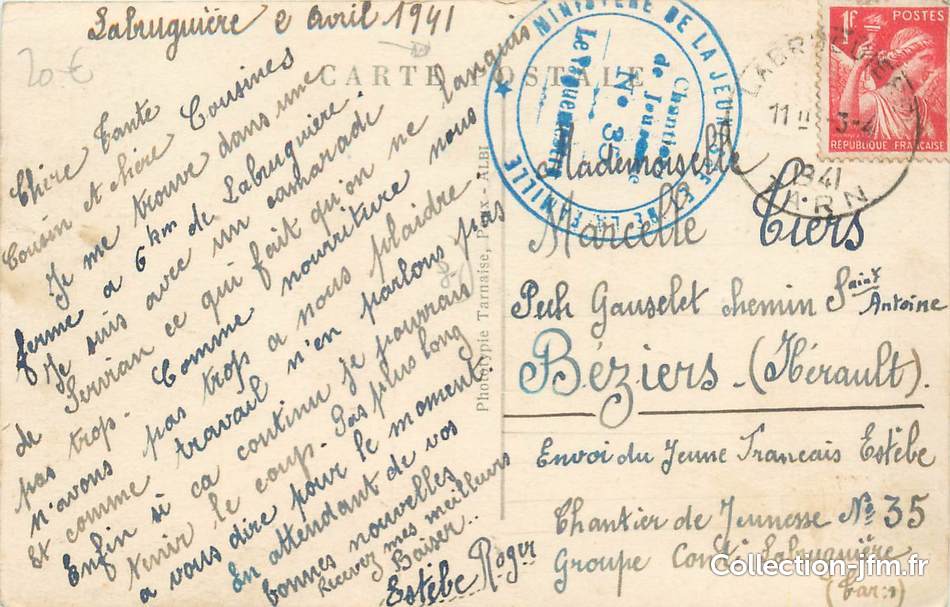 Labruguière 2 avril 1941
20 €
CARTE POSTALE
Chère Tante
Cousin et chère Cousines
Je me trouve dans une
ferme a 6 km de Labruguière.
Je suis avec un camarade
de Servian ce qui fait qu'on ne languis
pas trop. Comme nourriture nous
n'avons pas trop a nous plaidre.
Et comme travail n'en parlons pas
Enfin si ca continu je pourrais
tenir le coup. Pas plus long
a vous dire pour le moment.
En attendant de vos
bonnes nouvelles
Recevez mes meilleurs
Baiser..
Estèbe Roger
Phototypie Tarnaise, Poux - ALBI
MINISTÈRE DE LA JEUNESSE ET DE LA FAMILLE
Chantier
de Jeunesse
N° 35
1F POSTES
RÉPUBLIQUE FRANÇAISE
11 3-4
1941
TARN
Mademoiselle
Marcelle Tiers
Pech Gauselet chemin Saint
Antoine
Béziers - (Hérault).
Envoi du Jeune Francais Estèbe
Chantier de Jeunesse No 35
Groupe Labruguière
(Tarn)
Collection-jfm.fr